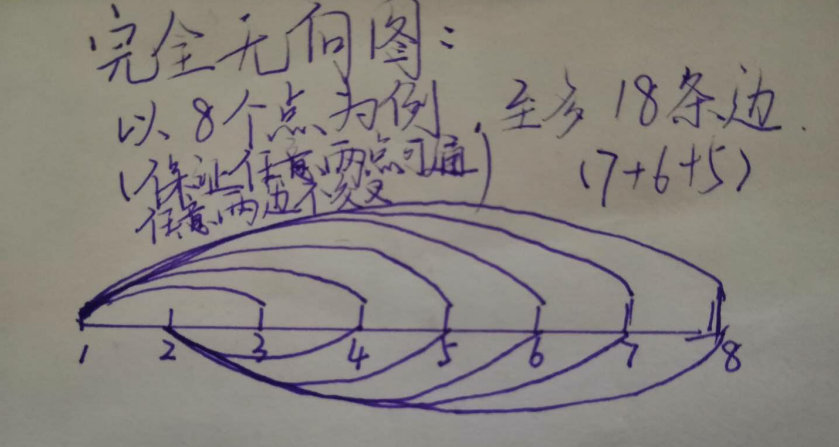 完全无向图:
以8个点为例, 至多18条边.
(保证任意两点可通) (7+6+5)
任意两边不交叉
1 2 3 4 5 6 7 8